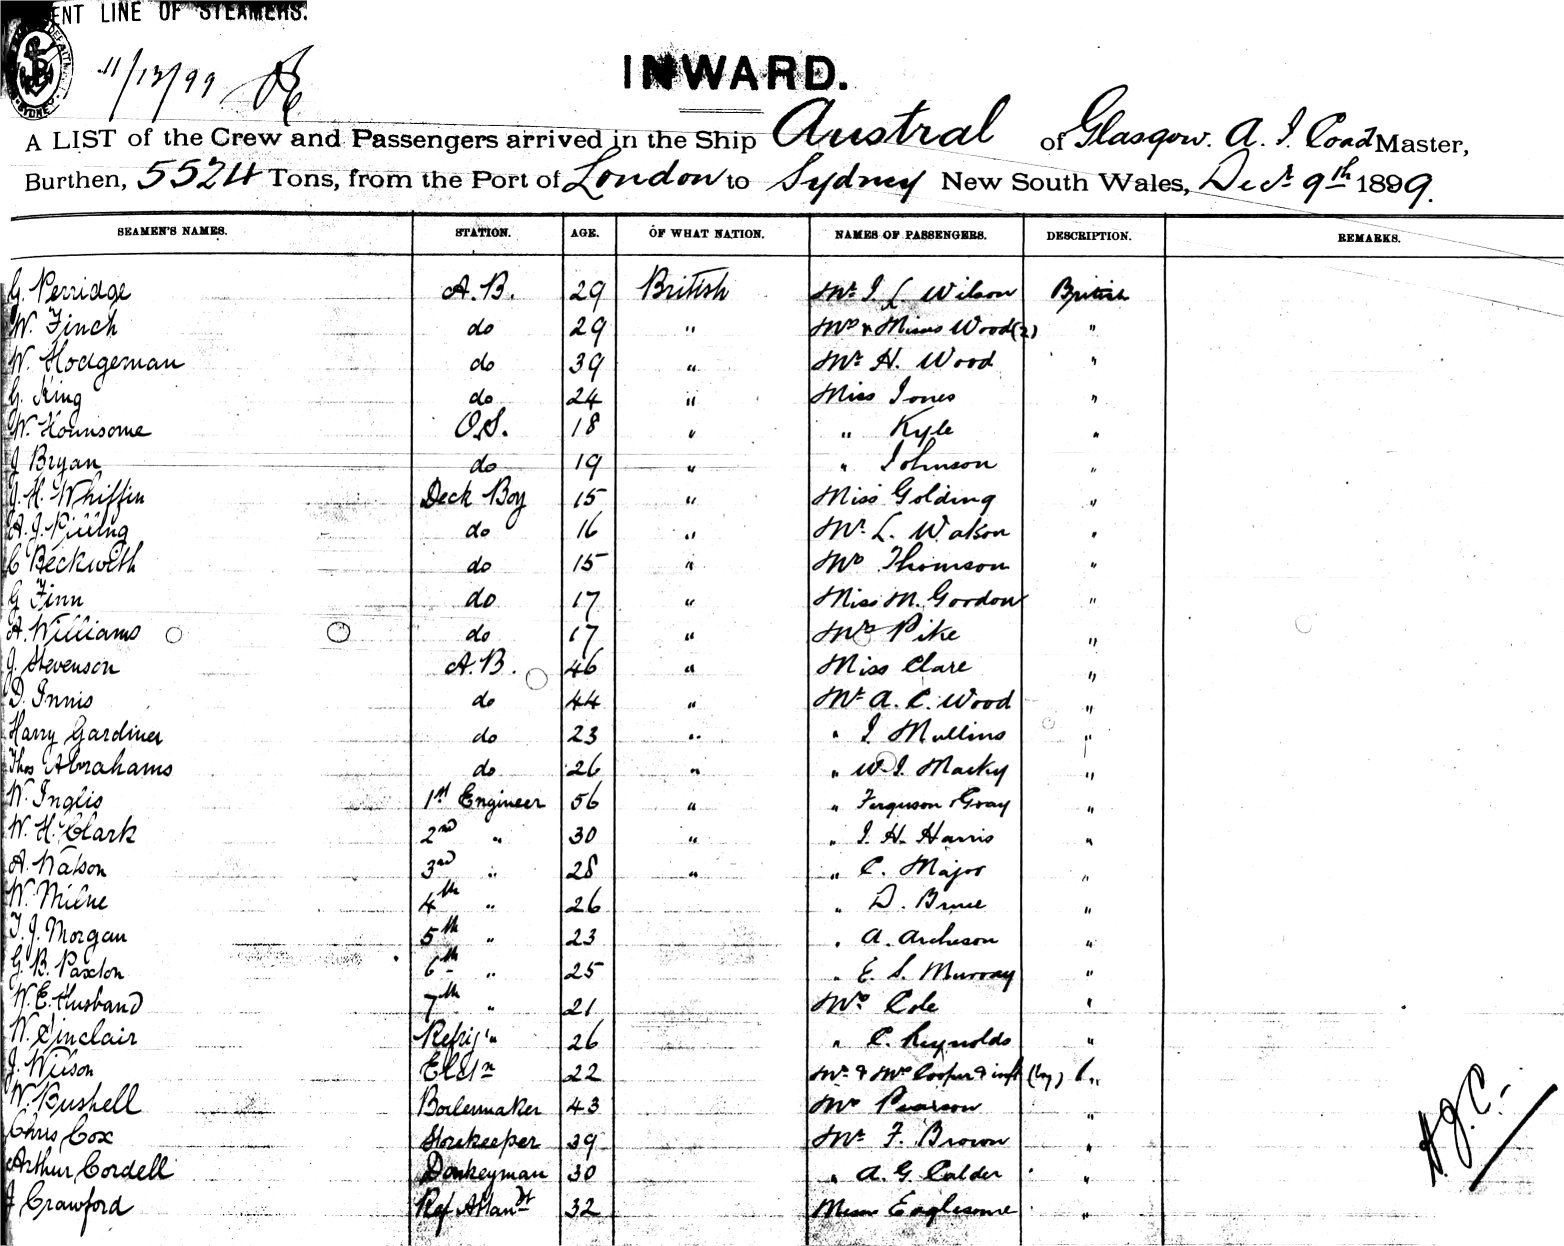 ENT LINE OF STEAMERS.
SYDNEY
11/12/99
INWARD.
A LIST of the Crew and Passengers arrived in the Ship Austral of Glasgow. A. J. Coad Master,
Burthen, 5524 Tons, from the Port of London to Sydney New South Wales, Decr 9th 1899.
SEAMEN'S NAMES. STATION. AGE. OF WHAT NATION. NAMES OF PASSENGERS. DESCRIPTION. REMARKS.
G. Perridge A.B. 29 British Mr. J. L. Wilson British
W. Finch do 29 " Mrs & Misses Wood (2) "
W. Hodgeman do 39 " Mr. H. Wood "
G. King do 24 " Miss Jones "
W. Hounsome O.S. 18 " " Kyle "
J Bryan do 19 " " Johnson "
J. H. Whiffin Deck Boy 15 " Miss Golding "
A. J. Pilling do 16 " Mr. L. Watson "
C Beckwith do 15 " Mrs Thomson "
G Finn do 17 " Miss M. Gordon "
A. Williams do 17 " Mrs Pike "
J. Stevenson A.B. 46 " Miss Clare "
D. Innis do 44 " Mr A. C. Wood "
Harry Gardiner do 23 " " J. Mullins "
Thos Abrahams do 26 " " W. J. Macky "
W. Inglis 1st Engineer 56 " " Ferguson Gray "
W. H. Clark 2nd " 30 " " J. H. Harris "
A. Watson 3rd " 28 " " C. Major "
W. Milne 4th " 26 " D. Bruce "
T. J. Morgan 5th " 23 " A. Acheson "
G. B. Paxton 6th " 25 " E. S. Murray "
W. E. Husband 7th " 21 Mrs Cole "
W. Sinclair Refrig " 26 " C. Reynolds "
J. Wilson Elctn 22 Mr. & Mrs Cooper & inft (by) "
W. Bushell Boilermaker 43 Mrs Pearson "
Chris Cox Storekeeper 39 Mr. F. Brown "
Arthur Cordell Donkeyman 30 " A. G. Calder "
J Crawford Ref Attandt 32 Misses Eaglesome "
A.J.C.